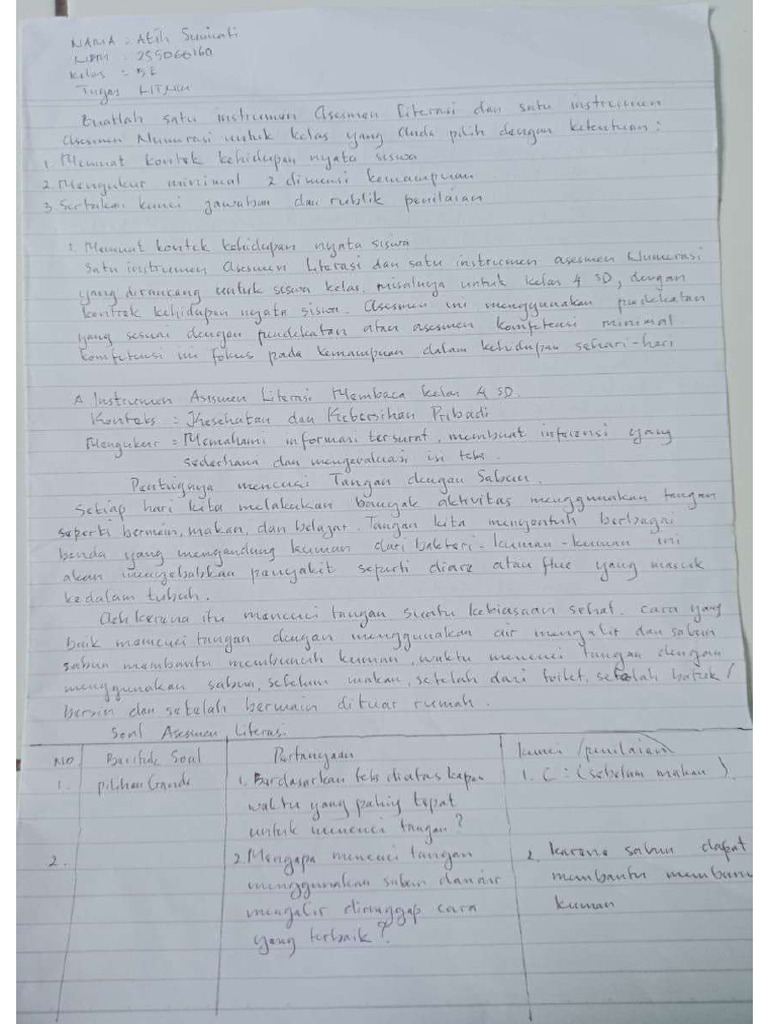 NAMA : Atih Suminati
NPM : 255060160
Kelas : 5E
Tugas LITNUM
Buatlah satu instrumen asesmen literasi dan satu instrumen
asesmen Numerasi untuk kelas yang anda pilih dengan ketentuan :
1. Memuat kontek kehidupan nyata siswa
2. Mengukur minimal 2 dimensi kemampuan
3. Sertakan kunci jawaban dan rublik penilaian
1. Memuat kontek kehidupan nyata siswa
Satu instrumen asesmen Literasi dan satu instrumen asesmen Numerasi
yang dirancang untuk siswa kelas, misalnya untuk kelas 4 SD, dengan
kontrek kehidupan nyata siswa. Asesmen ini menggunakan pendekatan
yang sesuai dengan pendekatan atau asesmen kompetensi minimal
kompetensi ini fokus pada kemampuan dalam kehidupan sehari-hari
A. Instrumen Asesmen Literasi Membaca kelas 4 SD.
Konteks : Kesehatan dan Kebersihan Pribadi
Mengukur = Memahami informasi tersurat, membuat inferensi yang
sederhana dan mengevaluasi isi teks.
Pentingnya mencuci Tangan dengan Sabun.
Setiap hari kita melakukan banyak aktivitas menggunakan tangan
seperti bermain, makan, dan belajar. Tangan kita menyentuh berbagai
benda yang mengandung kuman dari bakteri-kuman-kuman ini
akan menyebabkan penyakit seperti diare atau flue yang masuk
kedalam tubuh.
Oleh kerena itu mencuci tangan suatu kebiasaan sehat. cara yang
baik mencuci tangan dengan menggunakan air mengalir dan sabun
sabun membantu membunuh kuman, waktu mencuci tangan dengan
menggunakan sabun, sebelum makan, setelah dari toilet, setelah batuk/
bersin dan setelah bermain diluar rumah.
Soal Asesmen Literasi.
NO Bentuk Soal Pertanyaan kunci/penilaian
1. pilihan Ganda 1. Berdasarkan teks diatas kapan 1. C : (sebelum makan).
waktu yang paling tepat
untuk mencuci tangan ?
2. 2. Mengapa mencuci tangan 2. karena sabun dapat
menggunakan sabun dan air membantu membunu
mengalir dianggap cara kuman
yang terbaik ?